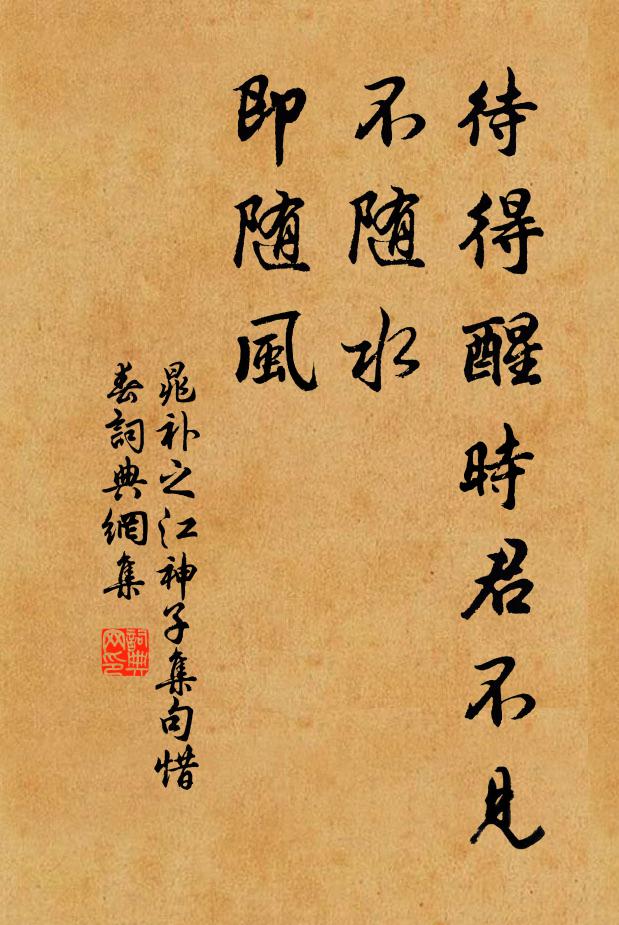 待得醒時君不見
不随水
即随風
晁补之江神子集句惜
春詞典網集
詞典
网印